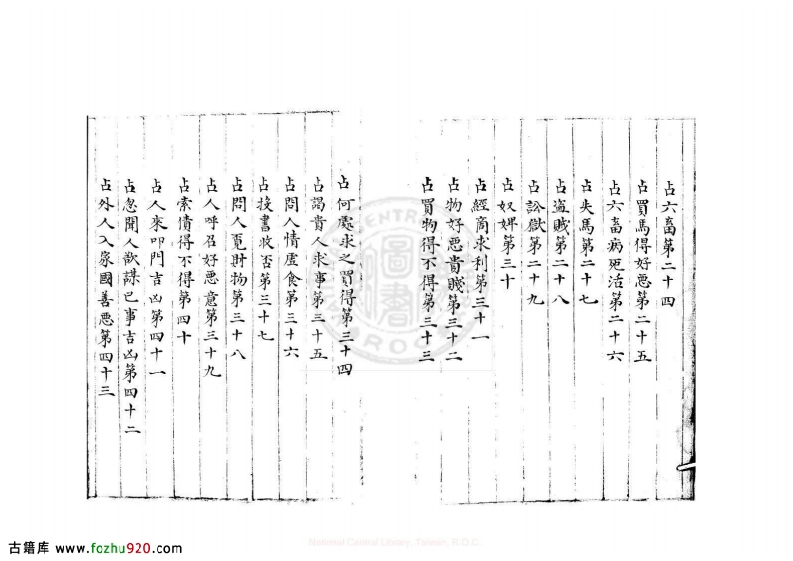 占六畜第二十四
占買馬得好惡第二十五
占六畜病死活第二十六
占失馬第二十七
占盜賊第二十八
占訟獄第二十九
占奴婢第三十
占經商求利第三十一
占物好惡貴賤第三十二
占買物得不得第三十三
占何處求之買得第三十四
占謁貴人求事第三十五
占問人情虛食第三十六
占投書收否第三十七
占問人覓財物第三十八
占人呼召好惡意第三十九
占索債得不得第四十
占人來叩門吉凶第四十一
占忽聞人欲謀己事吉凶第四十二
占外人入家國善惡第四十三
National Central Library, Taiwan, R.O.C.
古籍库 www.fozhu920.com